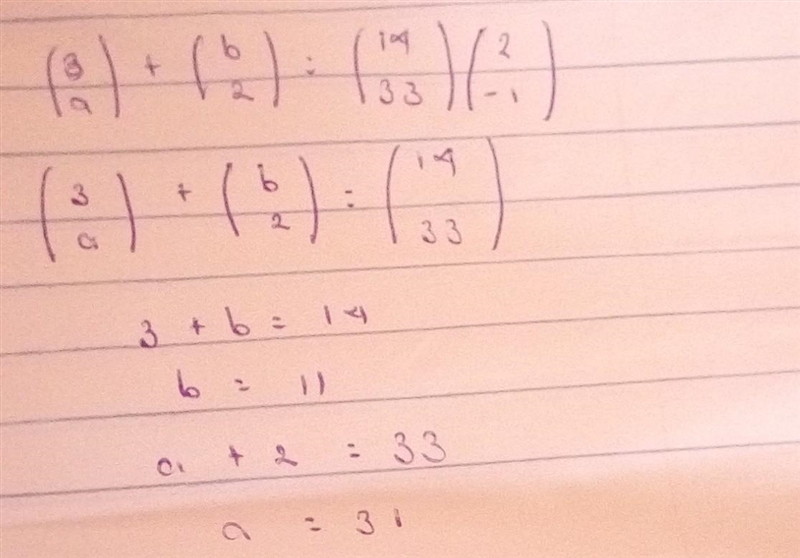 (3 a) + (b 2) = (14 33)(2 -1)
(3 a) + (b 2) = (14 33)
3 + b = 14
b = 11
a + 2 = 33
a = 31